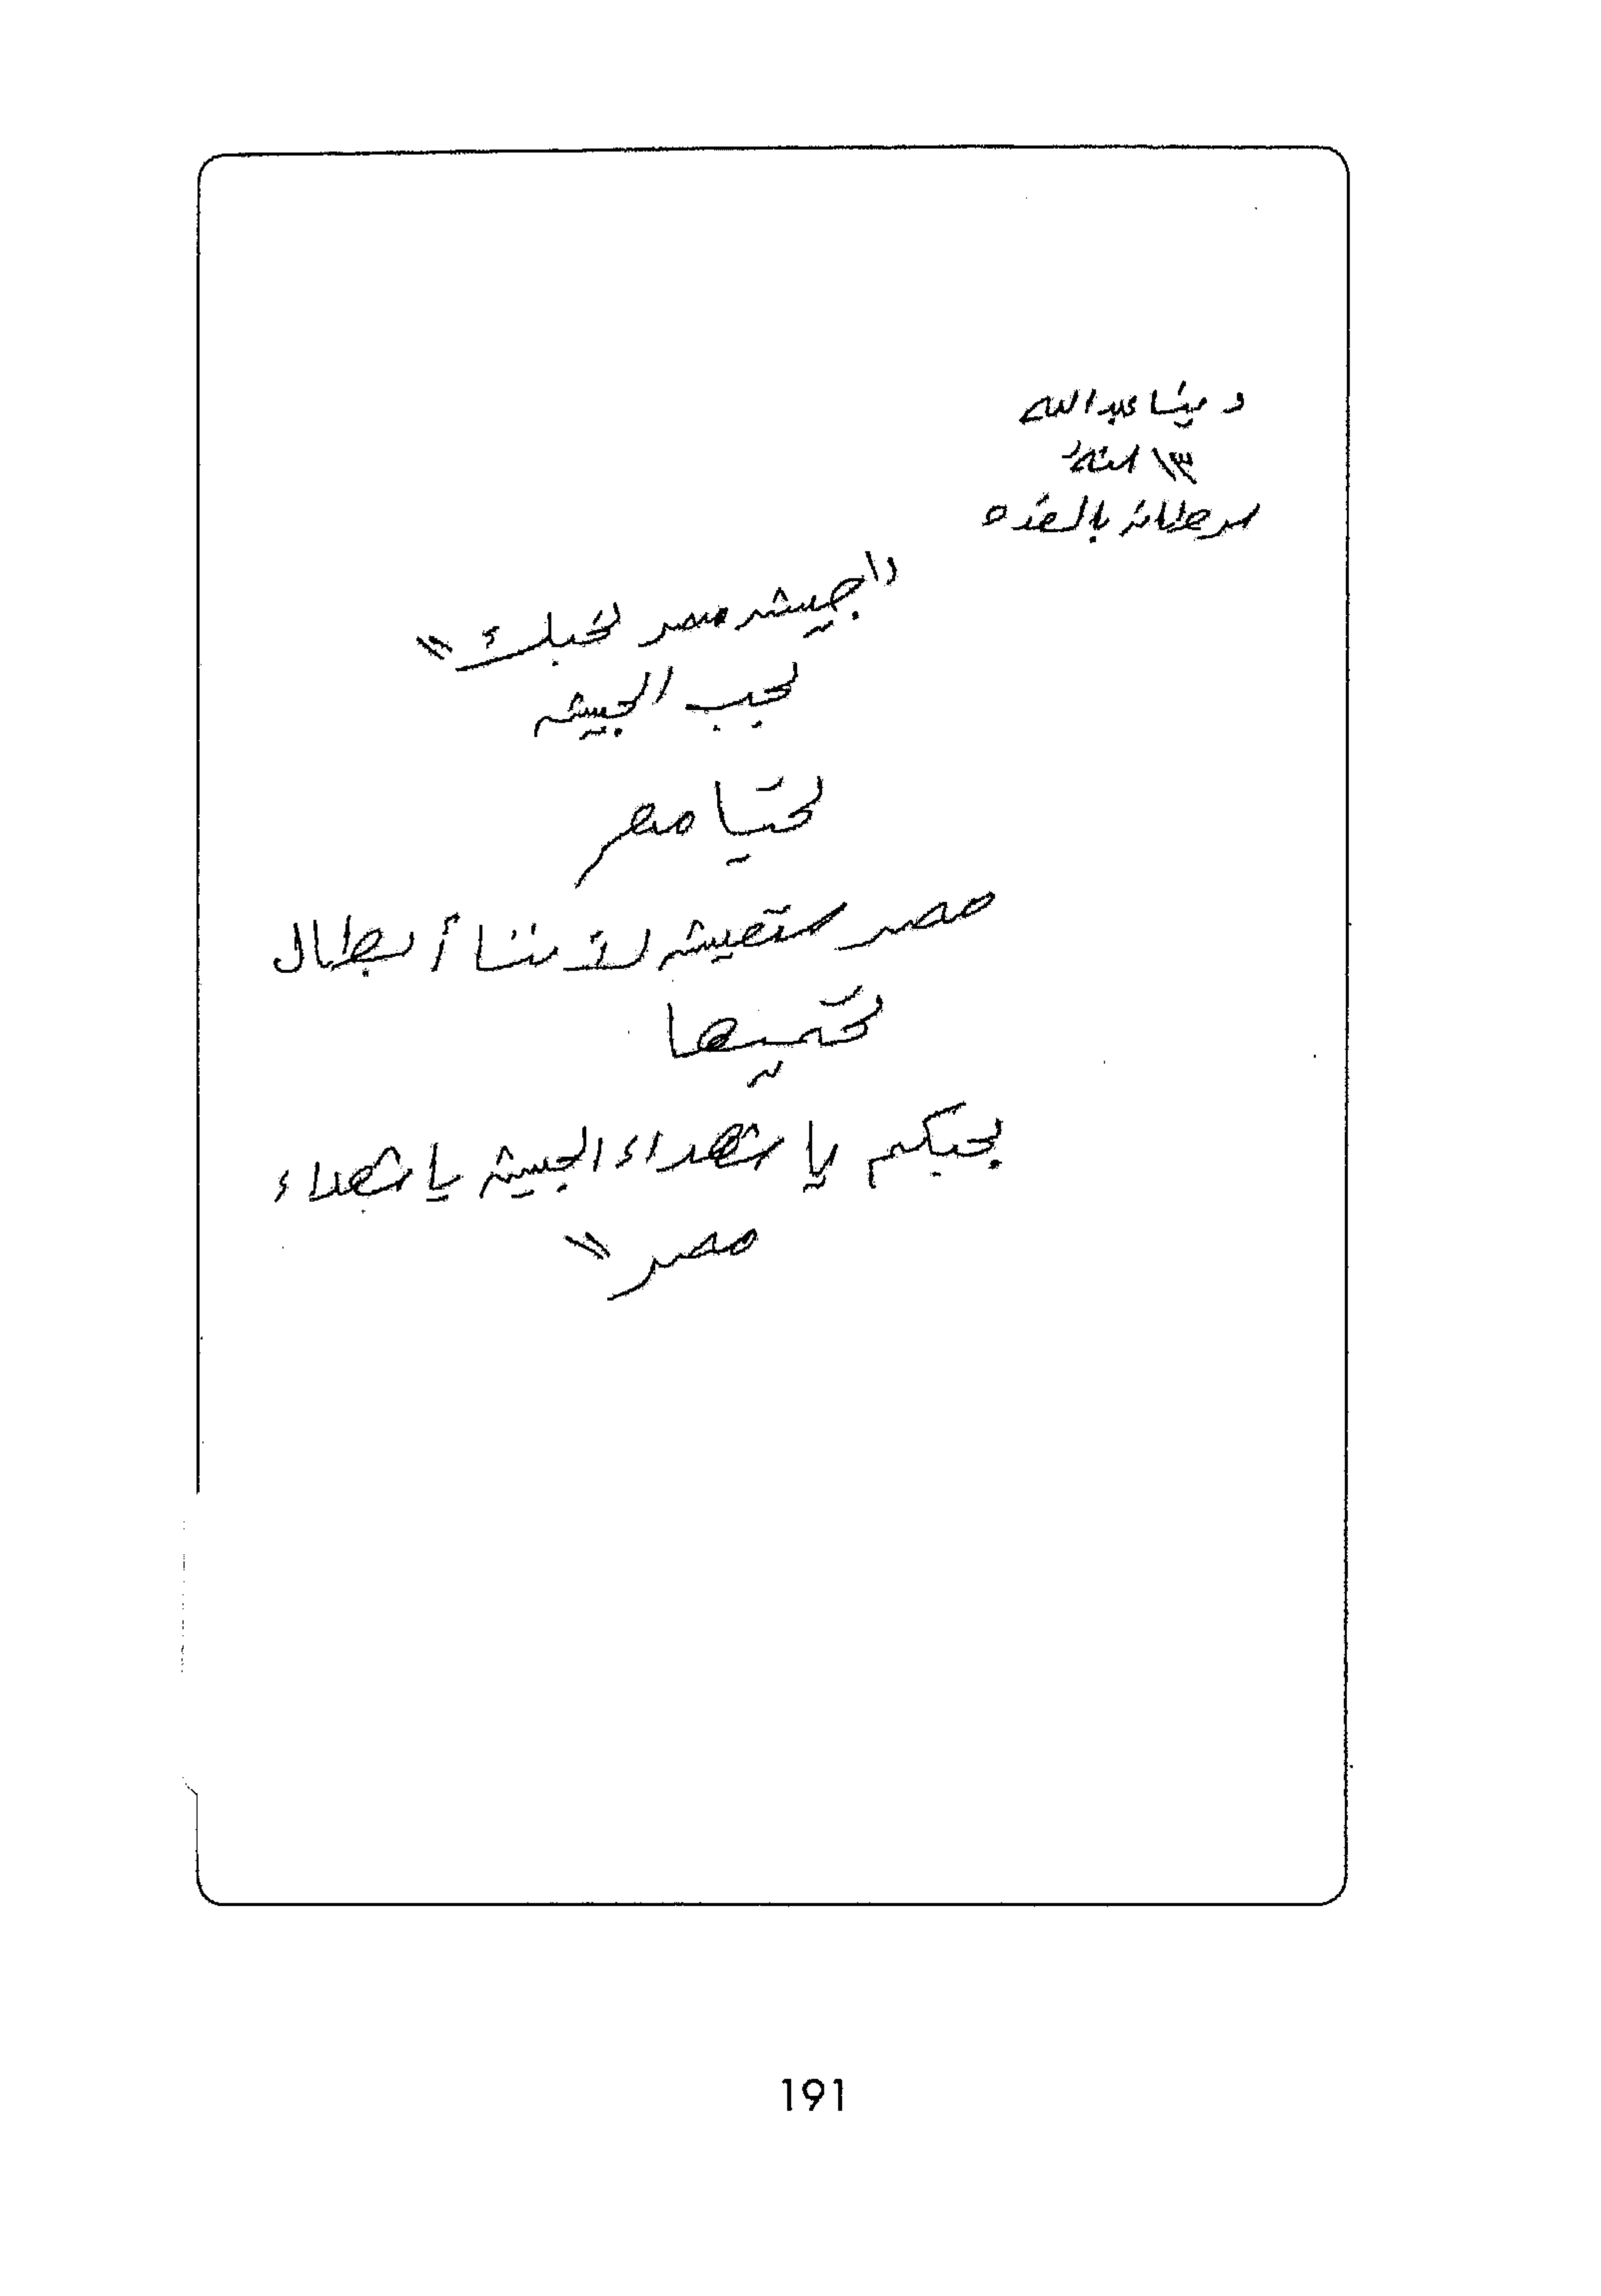 دينا عبد الله
١٣ سنة
سرطان بالغدة
"جيش مصر نحبك"
نحب الجيش
تحيا مصر
مصر ستعيش لأننا أبطال
تحميها
بحبكم يا شهداء الجيش يا شهداء
مصر"
191